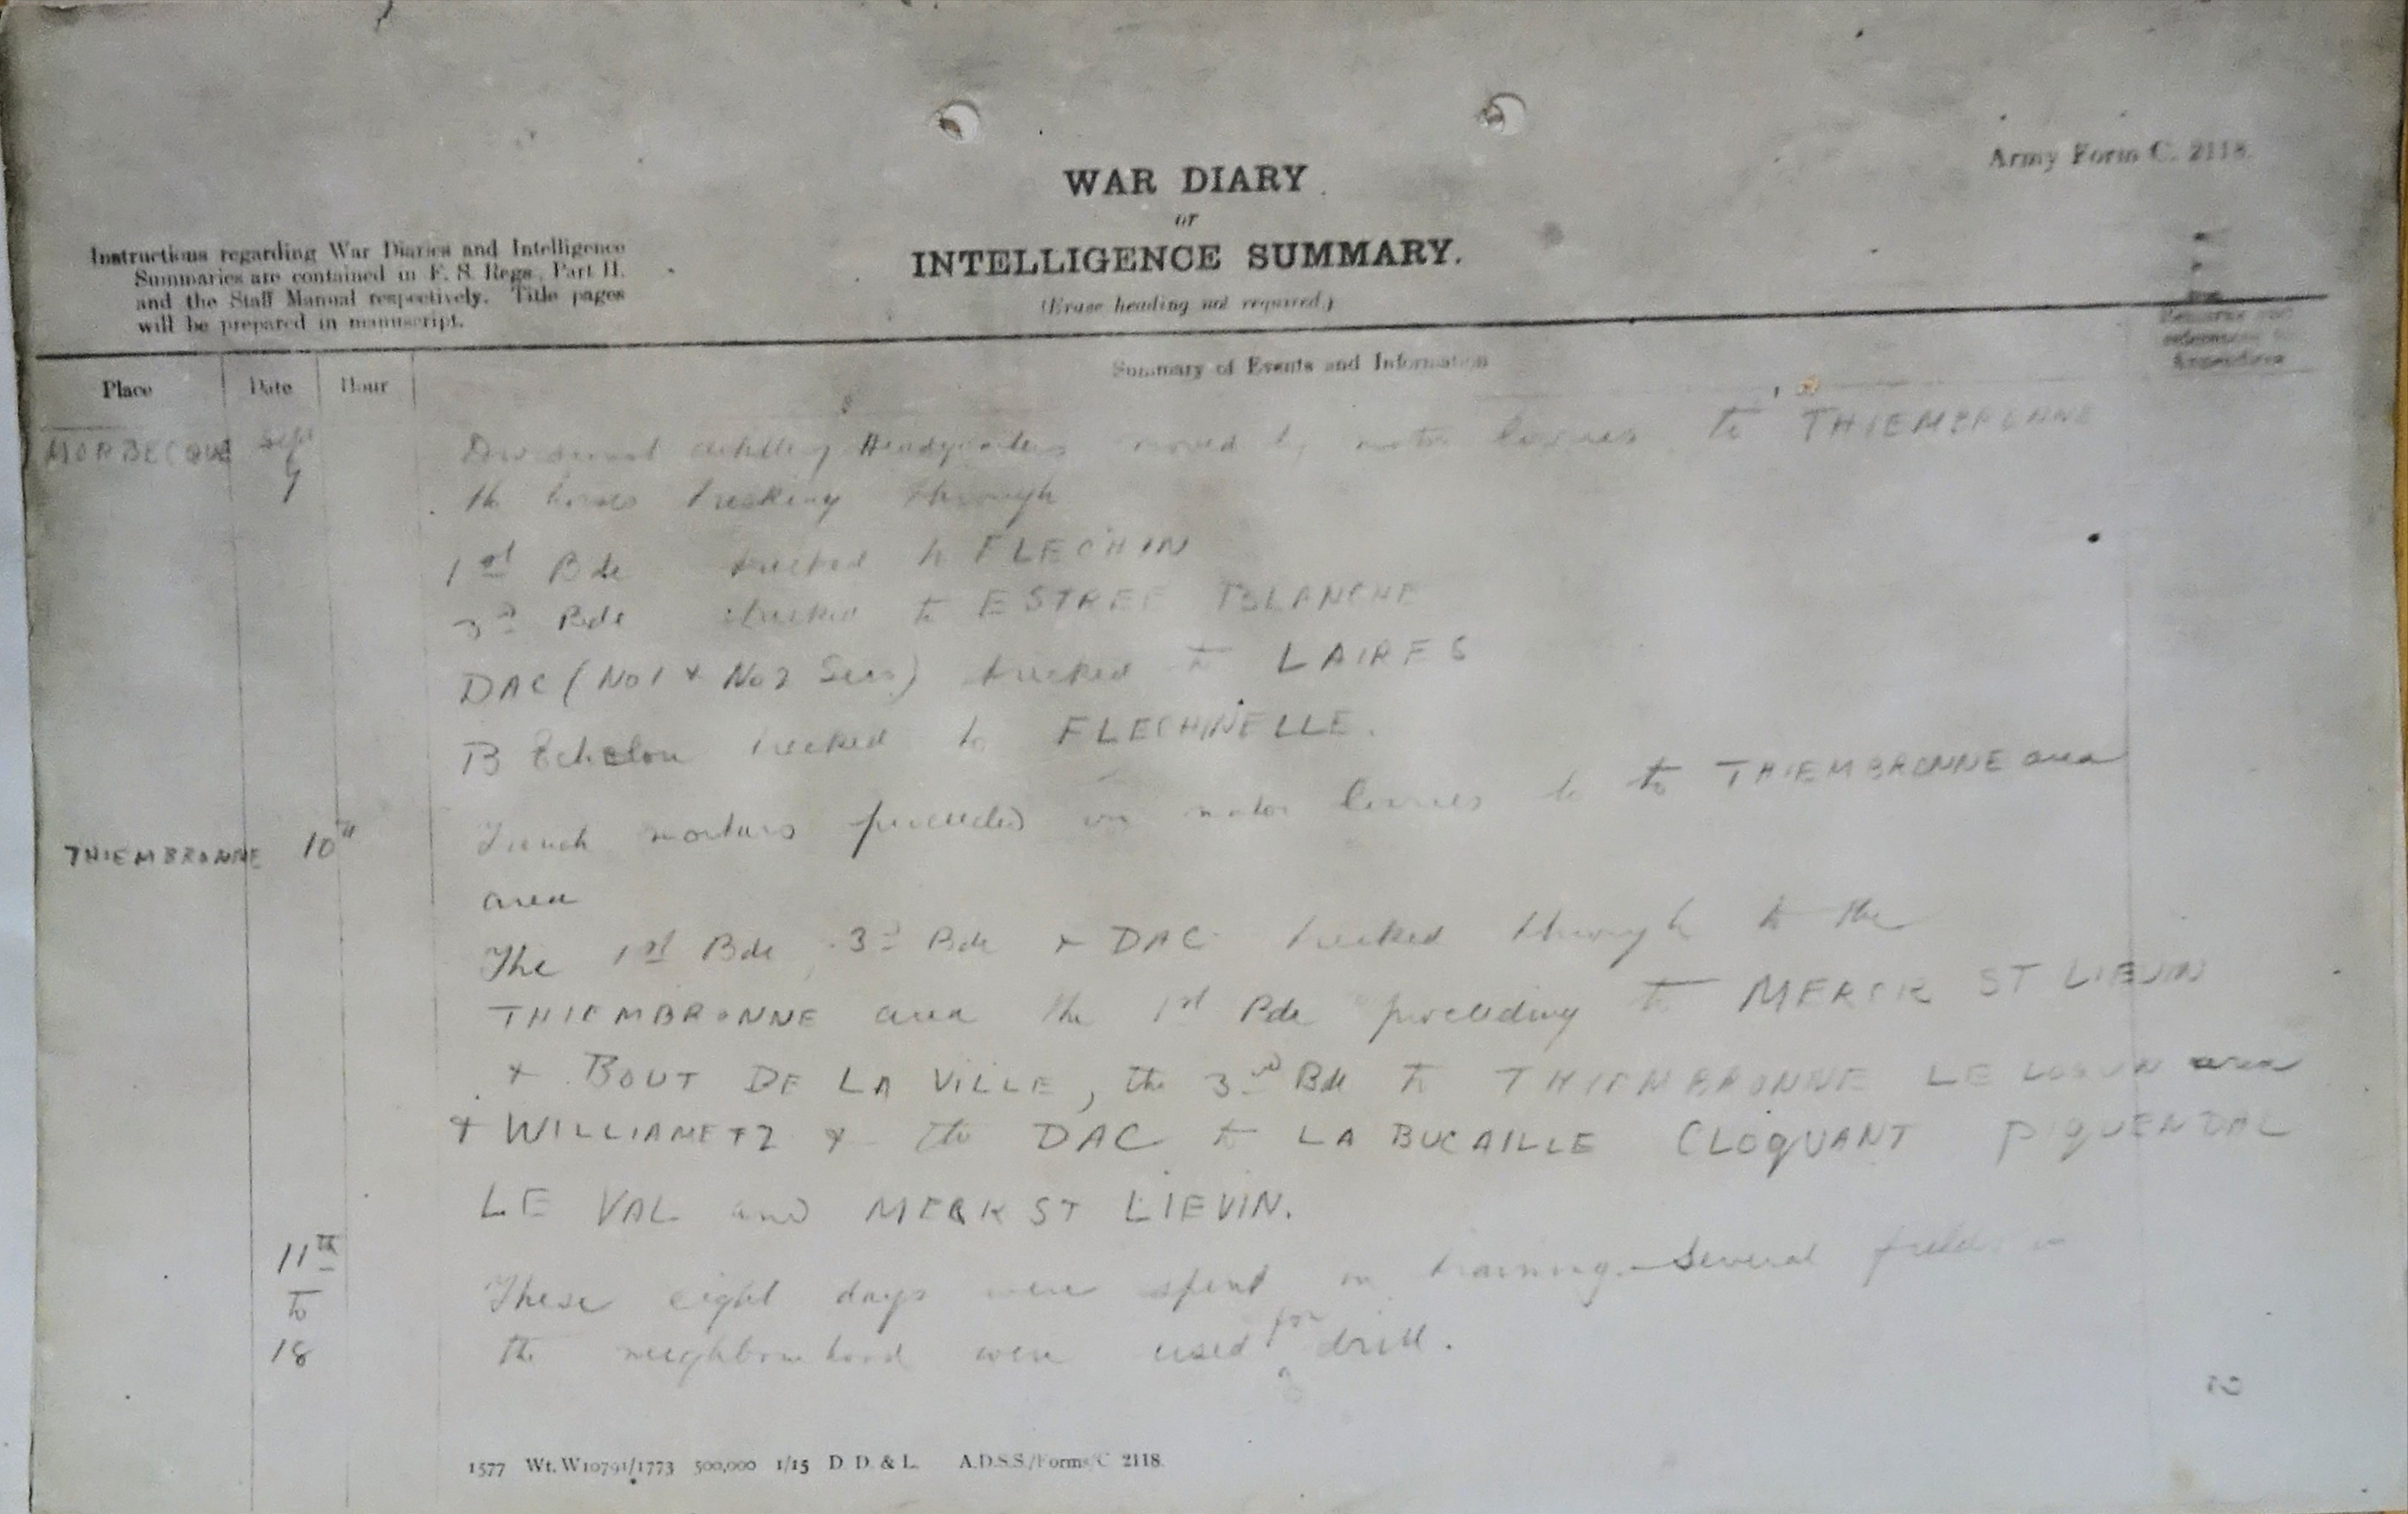 Army Form C. 2118.
WAR DIARY
or
INTELLIGENCE SUMMARY.
(Erase heading not required.)
Instructions regarding War Diaries and Intelligence
Summaries are contained in F. S. Regs., Part II.
and the Staff Manual respectively. Title pages
will be prepared in manuscript.
Place Date Hour Summary of Events and Information Remarks and
references to
Appendices
MORBECQUE Sept Divisional Artillery Headquarters moved by motor lorries to THIEMBRONNE
9 the horses trekking through
1st Bde trekked to FLECHIN
3rd Bde trekked to ESTREE BLANCHE
DAC (No 1 & No 2 Secs) trekked to LAIRES
B Echelon trekked to FLECHINELLE.
THIEMBRONNE 10th Trench mortars proceeded in motor lorries to to THIEMBRONNE area
area
The 1st Bde, 3rd Bde & DAC trekked through to the
THIEMBRONNE area the 1st Bde proceeding to MERCK ST LIEVIN
& BOUT DE LA VILLE, the 3rd Bde to THIEMBRONNE LE area
& WILLIAMETZ & the DAC to LA BUCAILLE CLOQUANT PIQUENDAL
LE VAL and MERK ST LIEVIN.
11th These eight days were spent in training. Several fields in
to
18 the neighbourhood were used for drill.
1577 Wt. W10791/1773 500,000 1/15 D. D. & L. A.D.S.S./Forms/C. 2118.